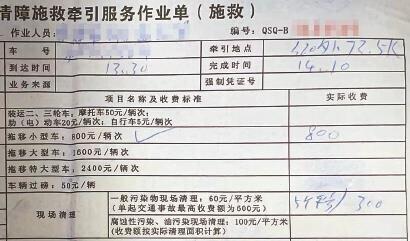 清障施救牵引服务作业单（施救）
作业人员： 编号：QSQ-B
车 号 牵引地点 72.5K
到达时间 13.30 完成时间 14.10
业务来源 强制凭证号
项目名称及收费标准 实际收费
装运二、三轮车，摩托车50元/辆次；
助（电）动车20元/辆次；自行车5元/辆次
拖移小型车：800元/辆次 ✓ 800
拖移大型车：1600元/辆次
拖移特大型车：2400元/辆次
车辆过磅：50元/辆
现场清理 一般污染物现场清理：60元/平方米 5平方/300
（单起交通事故最高收费额为600元）
腐蚀性污染、油污染现场清理：100元/平方米
（收费额按实际清理面积计算）